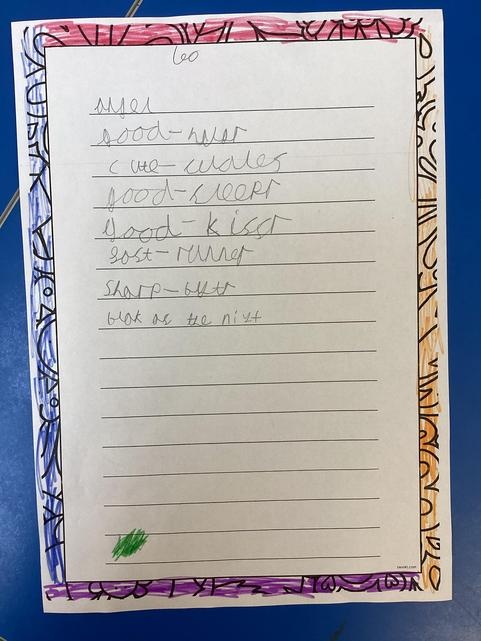 Leo
good-hyger
cute-cudles
good-sleepr
good-kissr
fast-runner
sharp-bytr
blak as the nitt
twinkl.com